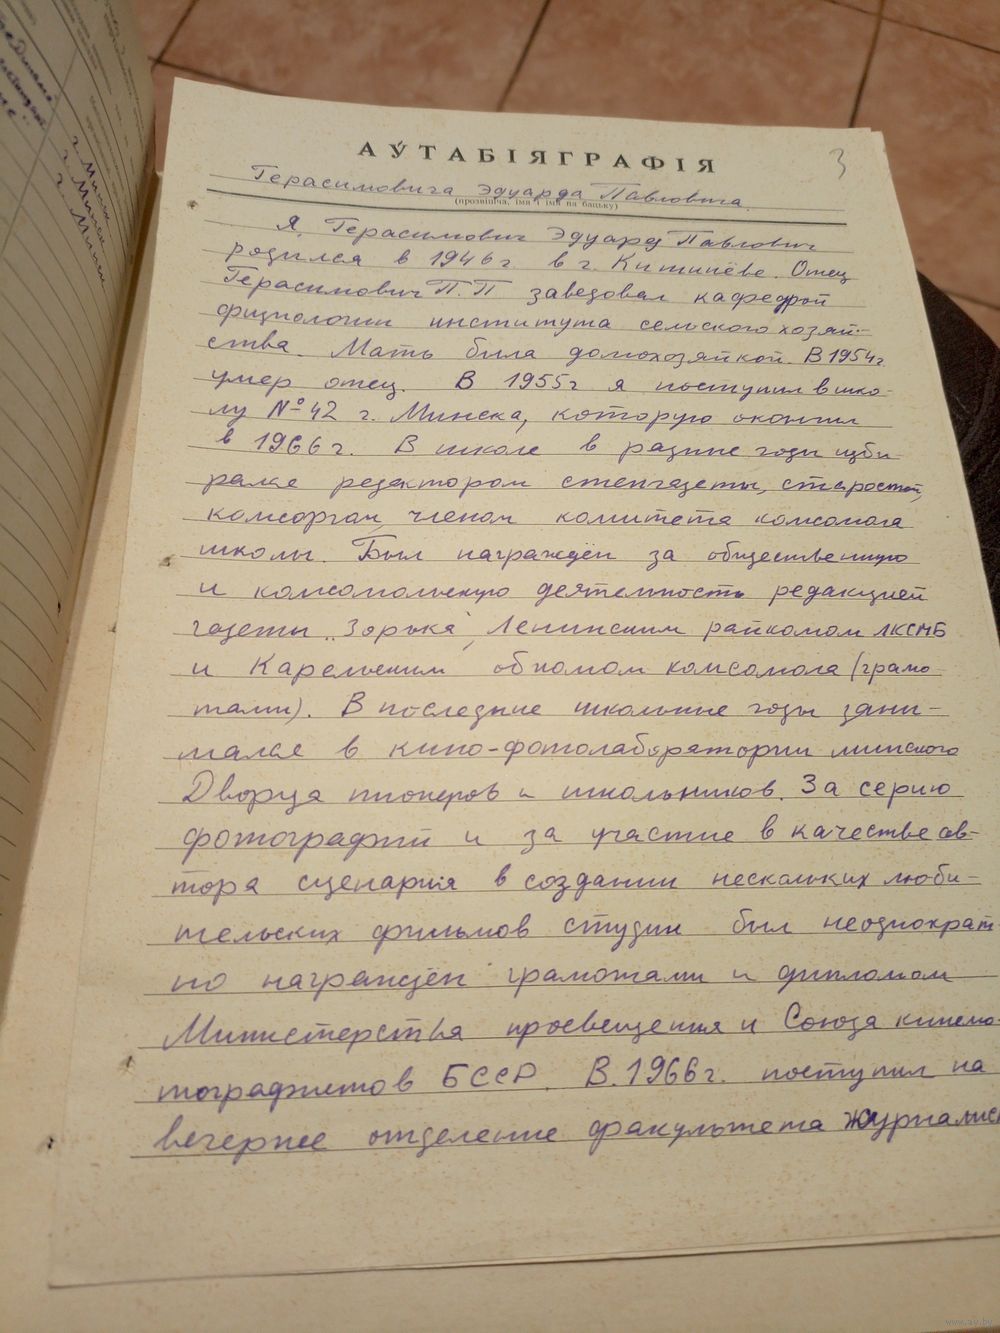 г. Минск
г. Минск
г. Минск
3
АЎТАБІЯГРАФІЯ
Герасимовича Эдуарда Павловича
(прозвішча, імя і імя па бацьку)
Я, Герасимович Эдуард Павлович
родился в 1946 г. в г. Кишинёве. Отец
Герасимович П. П заведовал кафедрой
физиологии института сельского хозяй-
ства. Мать была домохозяйкой. В 1954 г.
умер отец. В 1955 г я поступил в шко-
лу № 42 г. Минска, которую окончил
в 1966 г. В школе в разные годы изби-
рался редактором стенгазеты, старостой,
комсоргом, членом комитета комсомола
школы. Был награждён за общественную
и комсомольскую деятельность редакцией
газеты „Зорька", Ленинским райкомом ЛКСМБ
и Карельским обкомом комсомола (грамо
тами). В последние школьные годы зани-
мался в кино-фотолаборатории минского
Дворца пионеров и школьников. За серию
фотографий и за участие в качестве ав-
тора сценария в создании нескольких люби-
тельских фильмов студии был неоднократ-
но награждён грамотами и дипломом
Министерства просвещения и Союза кинема-
тографистов БССР. В 1966 г. поступил на
вечернее отделение факультета журналис
www.ay.by